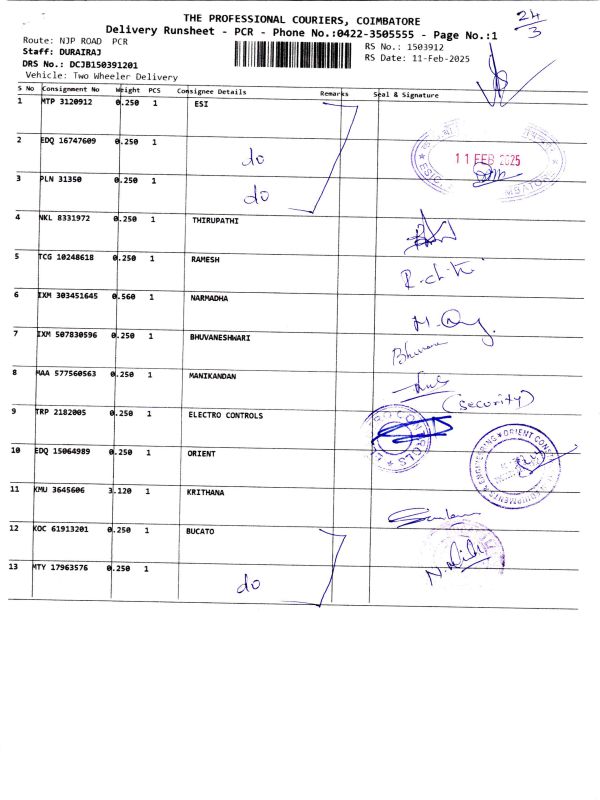 THE PROFESSIONAL COURIERS, COIMBATORE
24/3
Delivery Runsheet - PCR - Phone No.:0422-3505555 - Page No.:1
Route: NJP ROAD PCR
RS No.: 1503912
Staff: DURAIRAJ
RS Date: 11-Feb-2025
DRS No.: DCJB150391201
Vehicle: Two Wheeler Delivery
S No Consignment No Weight PCS Consignee Details Remarks Seal & Signature
1 MTP 3120912 0.250 1 ESI
2 EDQ 16747609 0.250 1 do
11 FEB 2025
3 PLN 31350 0.250 1 do
4 NKL 8331972 0.250 1 THIRUPATHI
5 TCG 10248618 0.250 1 RAMESH
6 IXM 303451645 0.560 1 NARMADHA
7 IXM 507830596 0.250 1 BHUVANESHWARI
8 MAA 577560563 0.250 1 MANIKANDAN
(security)
9 TRP 2182005 0.250 1 ELECTRO CONTROLS
10 EDQ 15064989 0.250 1 ORIENT
11 KMU 3645606 3.120 1 KRITHANA
12 KOC 61913201 0.250 1 BUCATO
13 MTY 17963576 0.250 1 do